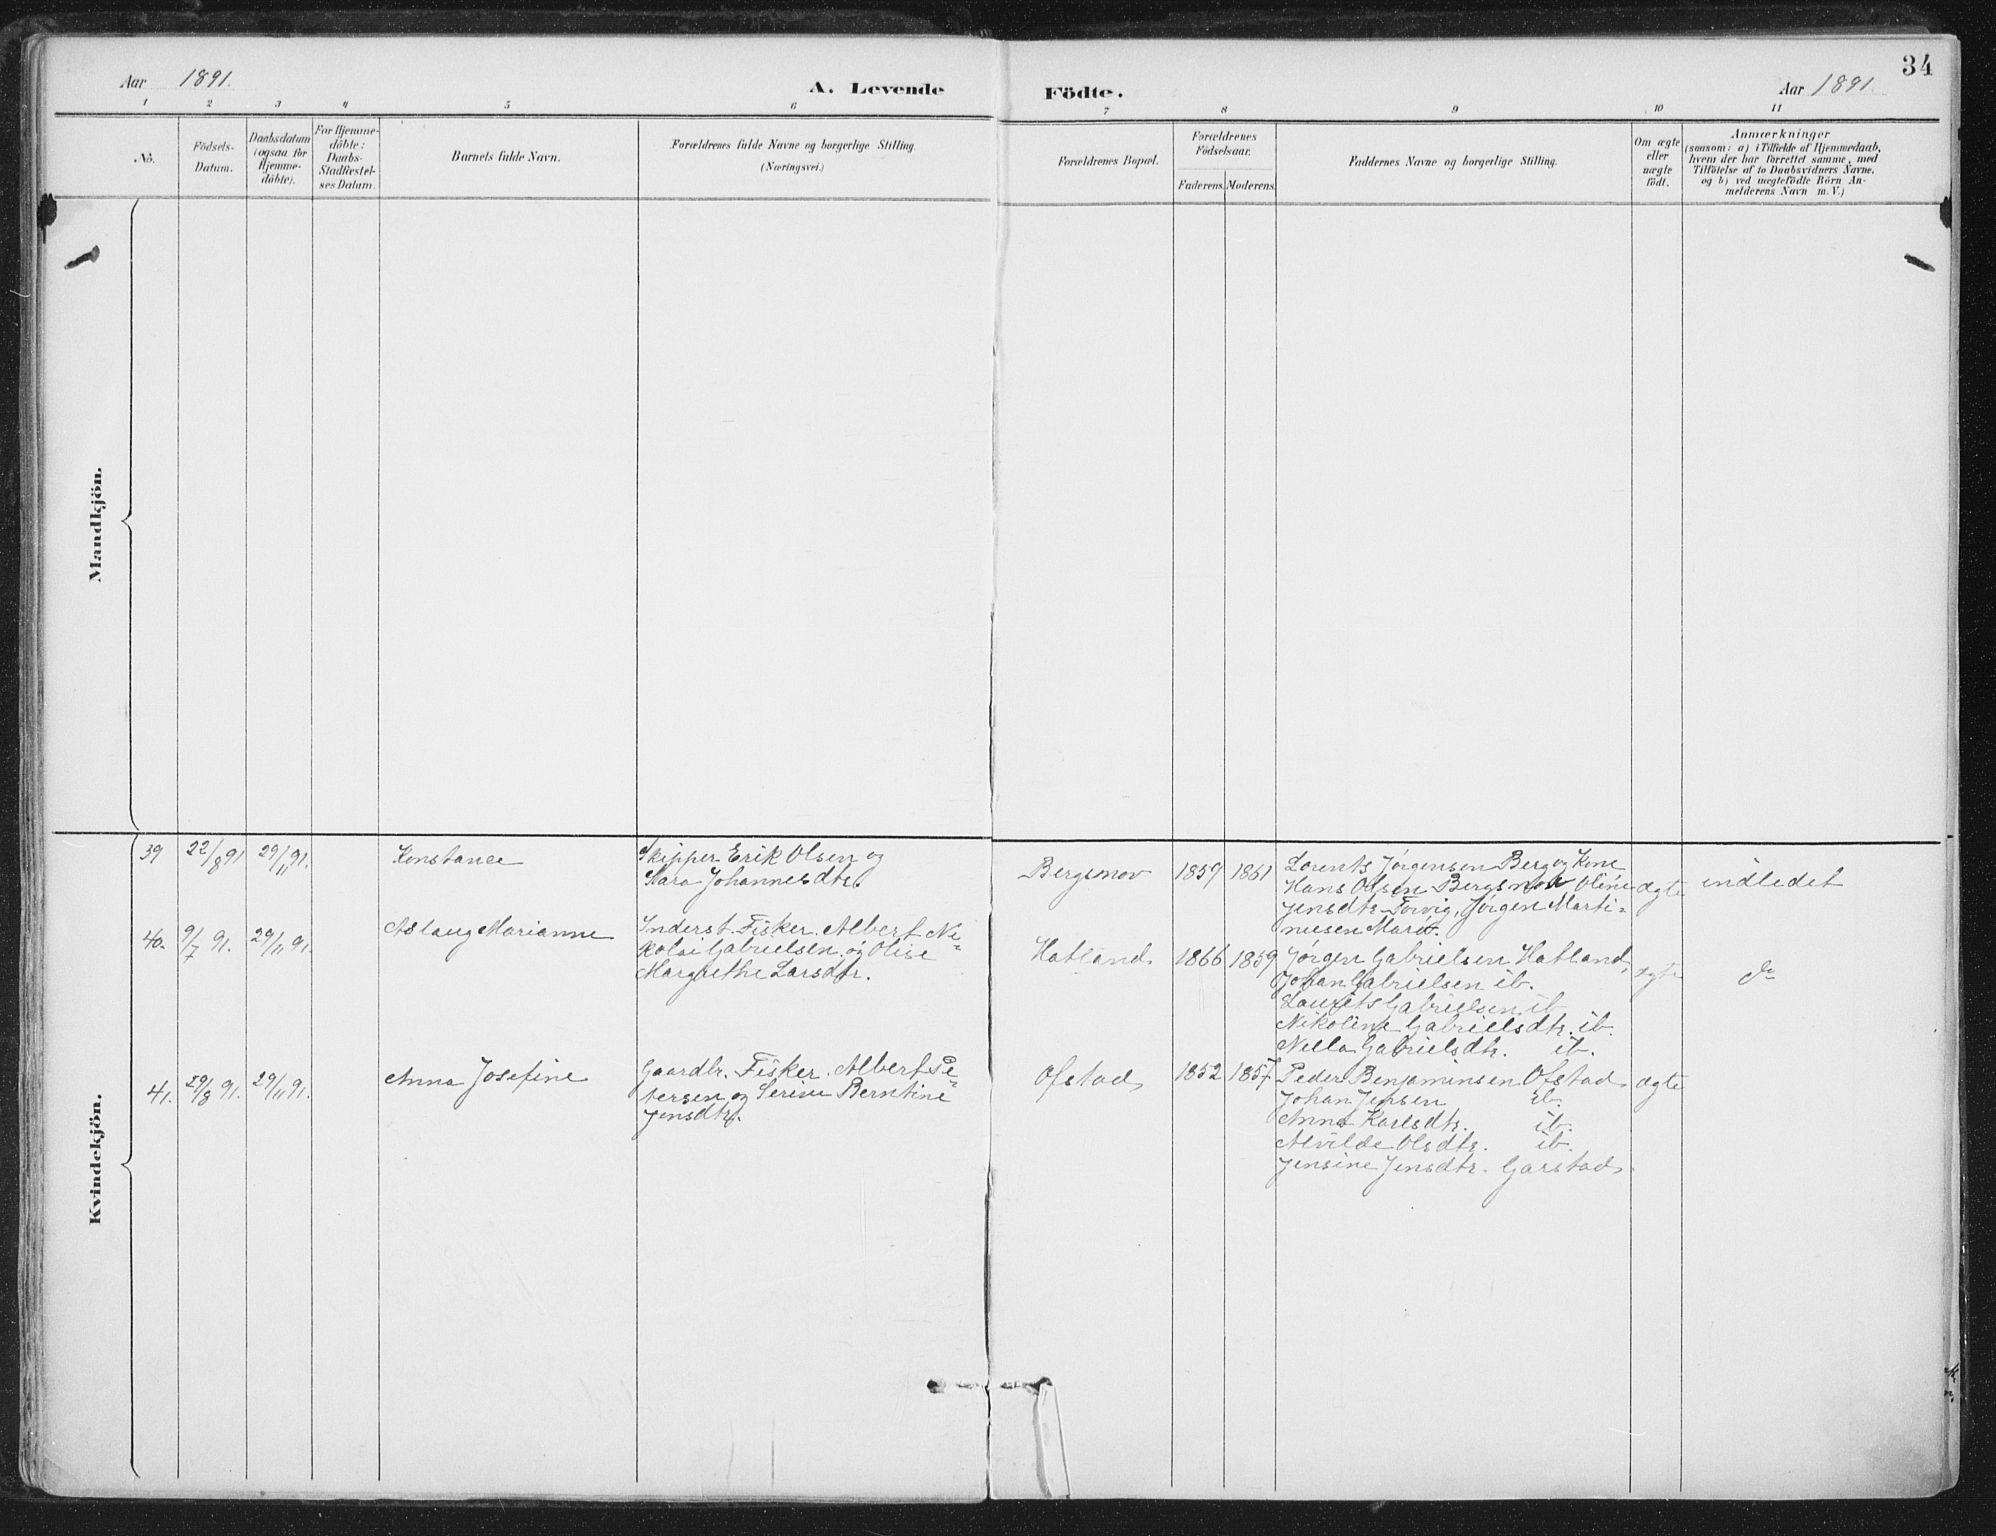 34
Aar 1891.
A. Levende Födte.
Aar 1891.
1 2 3 4 5 6 7 8 9 10 11
No.
Födsels-
Datum.
Daabsdatum
(ogsaa for
Hjemme-
döbte).
For Hjemme-
döbte:
Daabs-
Stadfæstel-
ses Datum.
Barnets fulde Navn.
Forældrenes fulde Navne og borgerlige Stilling.
(Næringsvei.)
Forældrenes Bopæl.
Forældrenes
Födselsaar.
Faderens. Moderens.
Faddernes Navne og borgerlige Stilling.
Om ægte
eller
uægte
födt.
Anmærkninger
(saasom: a) i Tilfælde af Hjemmedaab,
hvem der har forrettet samme, med
Tilföielse af to Daabsvidners Navne,
og b) ved uægtefödte Börn An-
melderens Navn m. V.)
Mandkjön.
Kvindekjön.
39 22/8 91 29/11 91. Konstance
Skipper Erik Olsen og
Johannesdtr.
Bergsnov 1859 1861
Lorents Jørgensen Berg og Kone
Hans Olsen Bergsnov Oline
Jensdtr. Torvig, Jørgen Marti-
niusen
ægte indledet
40. 9/7 91. 29/11 91. Aslaug Marianne
Inderst. Fisker. Albert Ni-
kolai Gabrielsen og Olise
Margrethe Larsdtr.
Hatland 1866 1859
Jørgen Gabrielsen Hatland,
Johan Gabrielsen ib.
Laurits Gabrielsen ib
Nikoline Gabrielsdtr. ib.
Nella Gabrielsdtr. ib.
ægte do
41. 29/8 91. 29/11 91. Anna Josefine
Gaardbr. Fisker. Albert Pe-
tersen og Serine Berntine
Jensdtr.
Ofstad 1852 1857
Peder Benjaminsen Ofstad
Johan Jensen ib.
Anna Karlsdtr. ib.
Alvilde Olsdtr. ib.
Jensine Jensdtr. Garstad
ægte